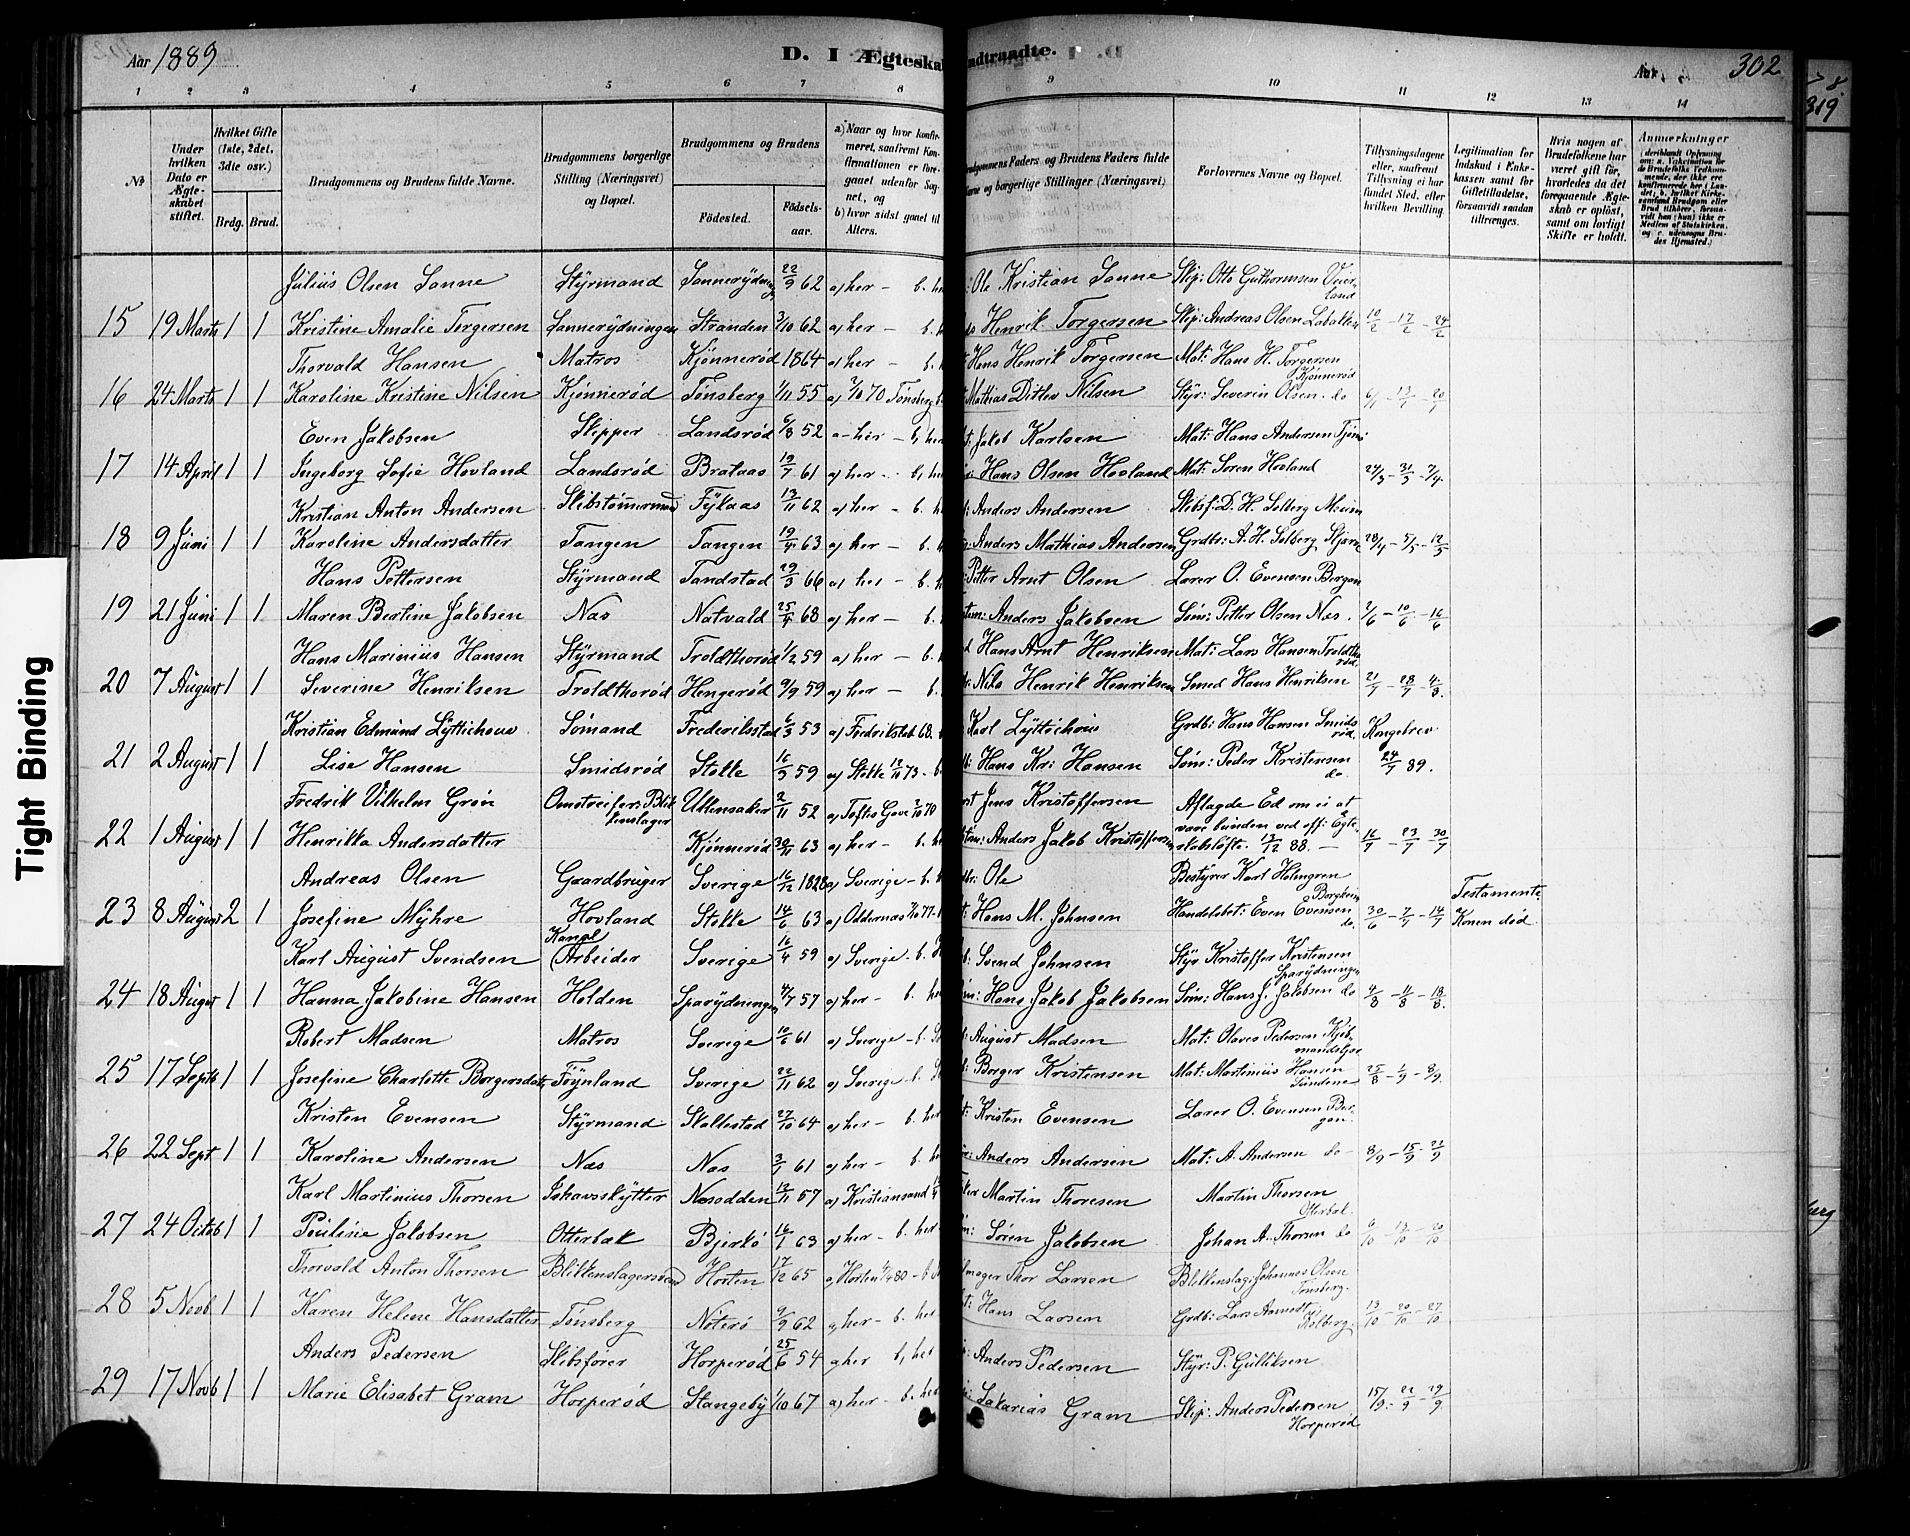 Aar 1889
D. I Ægteska
ndtraadte.
Aar
302
8
319
1 2 3 4 5 6 7 8 9 10 11 12 13 14
No
Under hvilken Dato er Ægteskabet stiftet.
Hvilket Gifte (1ste, 2det, 3die osv.)
Brdg. Brud.
Brudgommens og Brudens fulde Navne.
Brudgommens borgerlige Stilling (Næringsvei) og Bopæl.
Brudgommens og Brudens
Fødested. Fødselsaar.
a) Naar og hvor konfirmeret, saafremt Konfirmationen er foregaaet udenfor Sognet, og
b) hvor sidst gaaet til Alters.
Brudgommens Faders og Brudens Faders fulde Navne og borgerlige Stillinger (Næringsvei)
Forlovernes Navne og Bopæl.
Tillysningsdagene eller, saafremt Tillysning ei har fundet Sted, efter hvilken Bevilling.
Legitimation for Indskud i Enkekassen samt for Giftetilladelse, forsaavidt saadan tiltrænges.
Hvis nogen af Brudefolkene har været gift før, hvorledes da det foregaaende Ægteskab er opløst, samt om lovligt Skifte er holdt.
Anmerkninger
Julius Olsen Sanne Styrmand Sannerydning 22/9 62 a) her - b. he Ole Kristian Sanne Skip: Otto Guthormsen Veierland
15 19 Marts 1 1 Kristine Amalie Torgersen Sannerydningen Stranden 3/10 62 a) her - b. Henrik Torgersen Skip: Andreas Olsen Labakken 10/2 - 17/2 - 24/2
Thorvald Hansen Matros Kjønnerød 1864 a) her - b. Hans Henrik Torgersen Mat: Hans H. Torgersen Kjønnerød
16 24 Marts 1 1 Karoline Kristine Nilsen Kjønnerød Tønsberg 1/11 55 a) 2/10 70 Tønsberg Mathias Ditlev Nilsen Styr: Severin Olsen do
Even Jakobsen Skipper Landsrød 6/8 52 a - her - b, her Jakob Karlsen Mat: Hans Andersen
17 14 April 1 1 Ingeborg Sofie Hovland Landsrød Brataas 19/7 61 a) her - b, her Hans Olsen Hovland Mat: Søren Hovland 24/3 - 31/3 - 7/4
Kristian Anton Andersen Skibstømmermand Fykaas 13/11 62 a) her - b. h Anders Andersen Skibsf: D. H. Solberg
18 9 Juni 1 1 Karoline Andersdatter Tangen Tangen 19/4 63 a) her - b. Anders Mathias Andersen Grdbr: A. H. Solberg 28/4 - 5/5 - 12/5
Hans Pettersen Styrmand Tandstad 29/3 66 a) her - b. h Petter Arnt Olsen Lærer O. Evensen Bergan
19 21 Juni 1 1 Maren Bertine Jakobsen Næs Natvald 25/4 68 a) her - b. Anders Jakobsen Søm: Petter Olsen Næs. 2/6 - 10/6 - 16/6
Hans Marinius Hansen Styrmand Troldthorød 1/2 59 a) her - b. Hans Arnt Henriksen Mat: Lars Hansen Troldthorød
20 7 August 1 1 Severine Henriksen Troldthorød Hengerød 9/9 59 a) her - b. Nils Henrik Henriksen Smed Hans Henriksen 21/7 - 28/7 - 4/8.
Kristian Edmund Lyttichous Sømand Frederiksstad 6/3 53 a) Fredrikstad 68. Karl Lyttichous Grdb: Hans Hansen Smidsrød. Kongebrev
21 2 August 1 1 Lise Hansen Smidsrød Stokke 16/9 59 a) Stokke 73 - Hans Kr: Hansen Søm: Peder Kristensen do 24/7 89.
Fredrik Vilhelm Grøn Omstreifer, Blikkenslager Ullensaker 2/11 52 a) Toftes Gave 2/10 70 Jens Kristoffersen Aflagde Ed om ei at
22 1 August 1 1 Henrikka Andersdatter Kjønnerød 30/11 63 a) her - b. her Anders Jakob Kristoffersen være bunden ved off: Egteskabsløfte. 13/12 88. - 16/7 - 23/7 - 30/7
Andreas Olsen Gaardbruger Sverige 16/12 1828 a) Sverige - b. Ole Bestyrer Karl Holmgren Borgheim Testamente
23 8 August 2 1 Josefine Myhre Hovland Stokke 14/6 63 a) Oddernæs 77. Hans M. Johnsen Handelsbet: Even Evensen do. 30/6 - 7/7 - 14/7 Konen død.
Karl August Svendsen Kanal Arbeider Sverige 16/4 59 a) Sverige. b. Svend Johnsen Styr Kristoffer Kristensen Sparydningen
24 18 August 1 1 Hanna Jakobine Hansen Holden Sparydningen 4/7 57 a) her - b. her Hans Jakob Jakobsen Søm: Hans J. Jakobsen do 4/8 - 11/8 - 18/8.
Robert Madsen Matros Sverige 10/6 61 a) Sverige - b. August Madsen Mat: Olaves Pedersen
25 17 Septb 1 1 Josefine Charlotte Borgersdatr Føynland Sverige 22/11 62 a) Sverige b. Borger Kristensen Mat: Martinius Hansen Sundene 25/8 - 1/9 - 8/9.
Kristen Evensen Styrmand Skallestad 27/10 64 a) her - b. her Kristen Evensen Lærer O. Evensen Bergan.
26 22 Sept 1 1 Karoline Andersen Næs Næs 3/1 61 a) her - b. he Anders Andersen Mat: A. Andersen do 8/9 - 15/9 - 22/9
Karl Martinius Thorsen Ishavsskytter Næsodden 12/11 57 a) Kristiansand Martin Thoresen Martin Thorsen Otterbæk.
27 24 Octob 1 1 Pauline Jakobsen Otterbæk Bjerkø 16/1 63 a) her - b. her Søren Jakobsen Johan A. Thorsen do 6/10 - 13/10 - 20/10
Thorvald Anton Thorsen Blikkenslagersvend Horten 17/12 65 a) Horten 80 - b. Thor Larsen Blikkenslag: Johannes Olsen Tønsberg.
28 5 Novb 1 1 Karen Helene Hansdatter Tønsberg Nøterø 9/9 62 a) her - b. her Hans Larsen Grdb: Lars Kolberg. 13/10 - 20/10 - 27/10
Anders Pedersen Skibsfører Horperød 25/6 54 a) her b, her Anders Pedersen Styr: P. Gulliksen
29 17 Novb 1 1 Marie Elisabet Gram Horperød Stangeby 1/10 67 a) her - b. her Sakarias Gram Skip: Anders Pedersen Horperød 15/9 - 22/9 - 29/9
Tight Binding